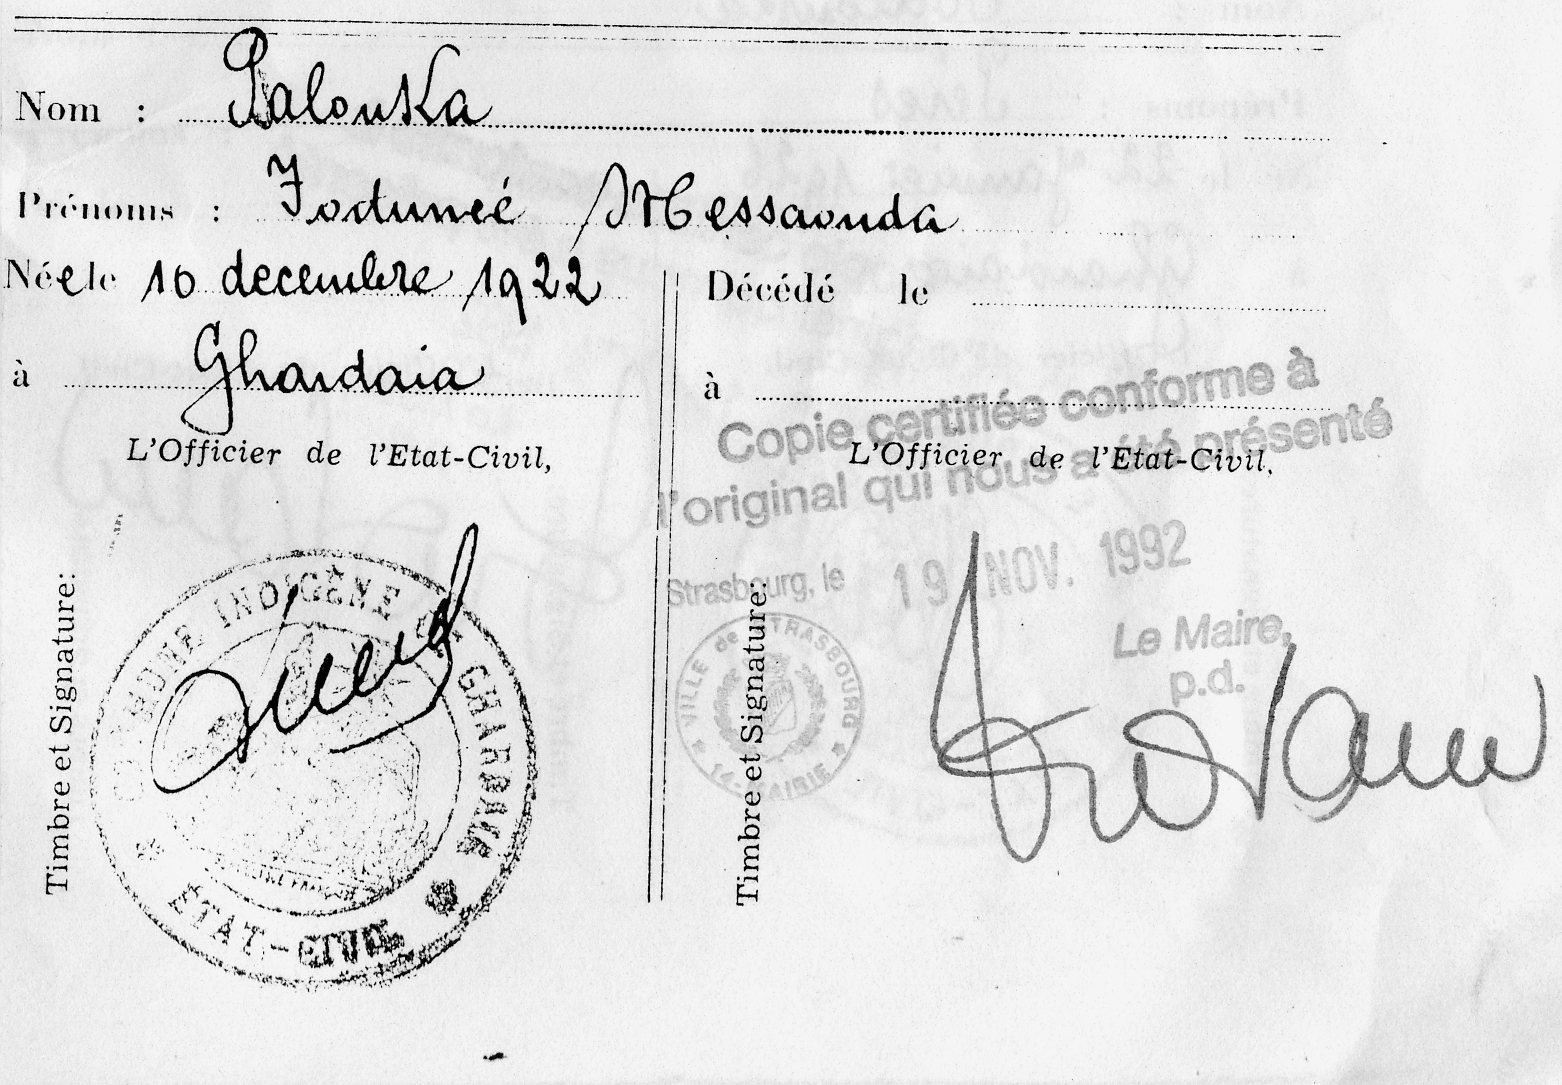 Nom : Balouka
Prénoms : Fortuneé Messaouda
Néele 10 decembre 1922
à Ghardaia
L'Officier de l'Etat-Civil,
Timbre et Signature:
COMMUNE INDIGÈNE DE GHARDAIA
ÉTAT-CIVIL
Décédé le
à
L'Officier de l'Etat-Civil,
Timbre et Signature:
Copie certifiée conforme à
l'original qui nous a été présenté
Strasbourg, le 19 NOV. 1992
Le Maire,
p.d.
VILLE de STRASBOURG
14-MAIRIE